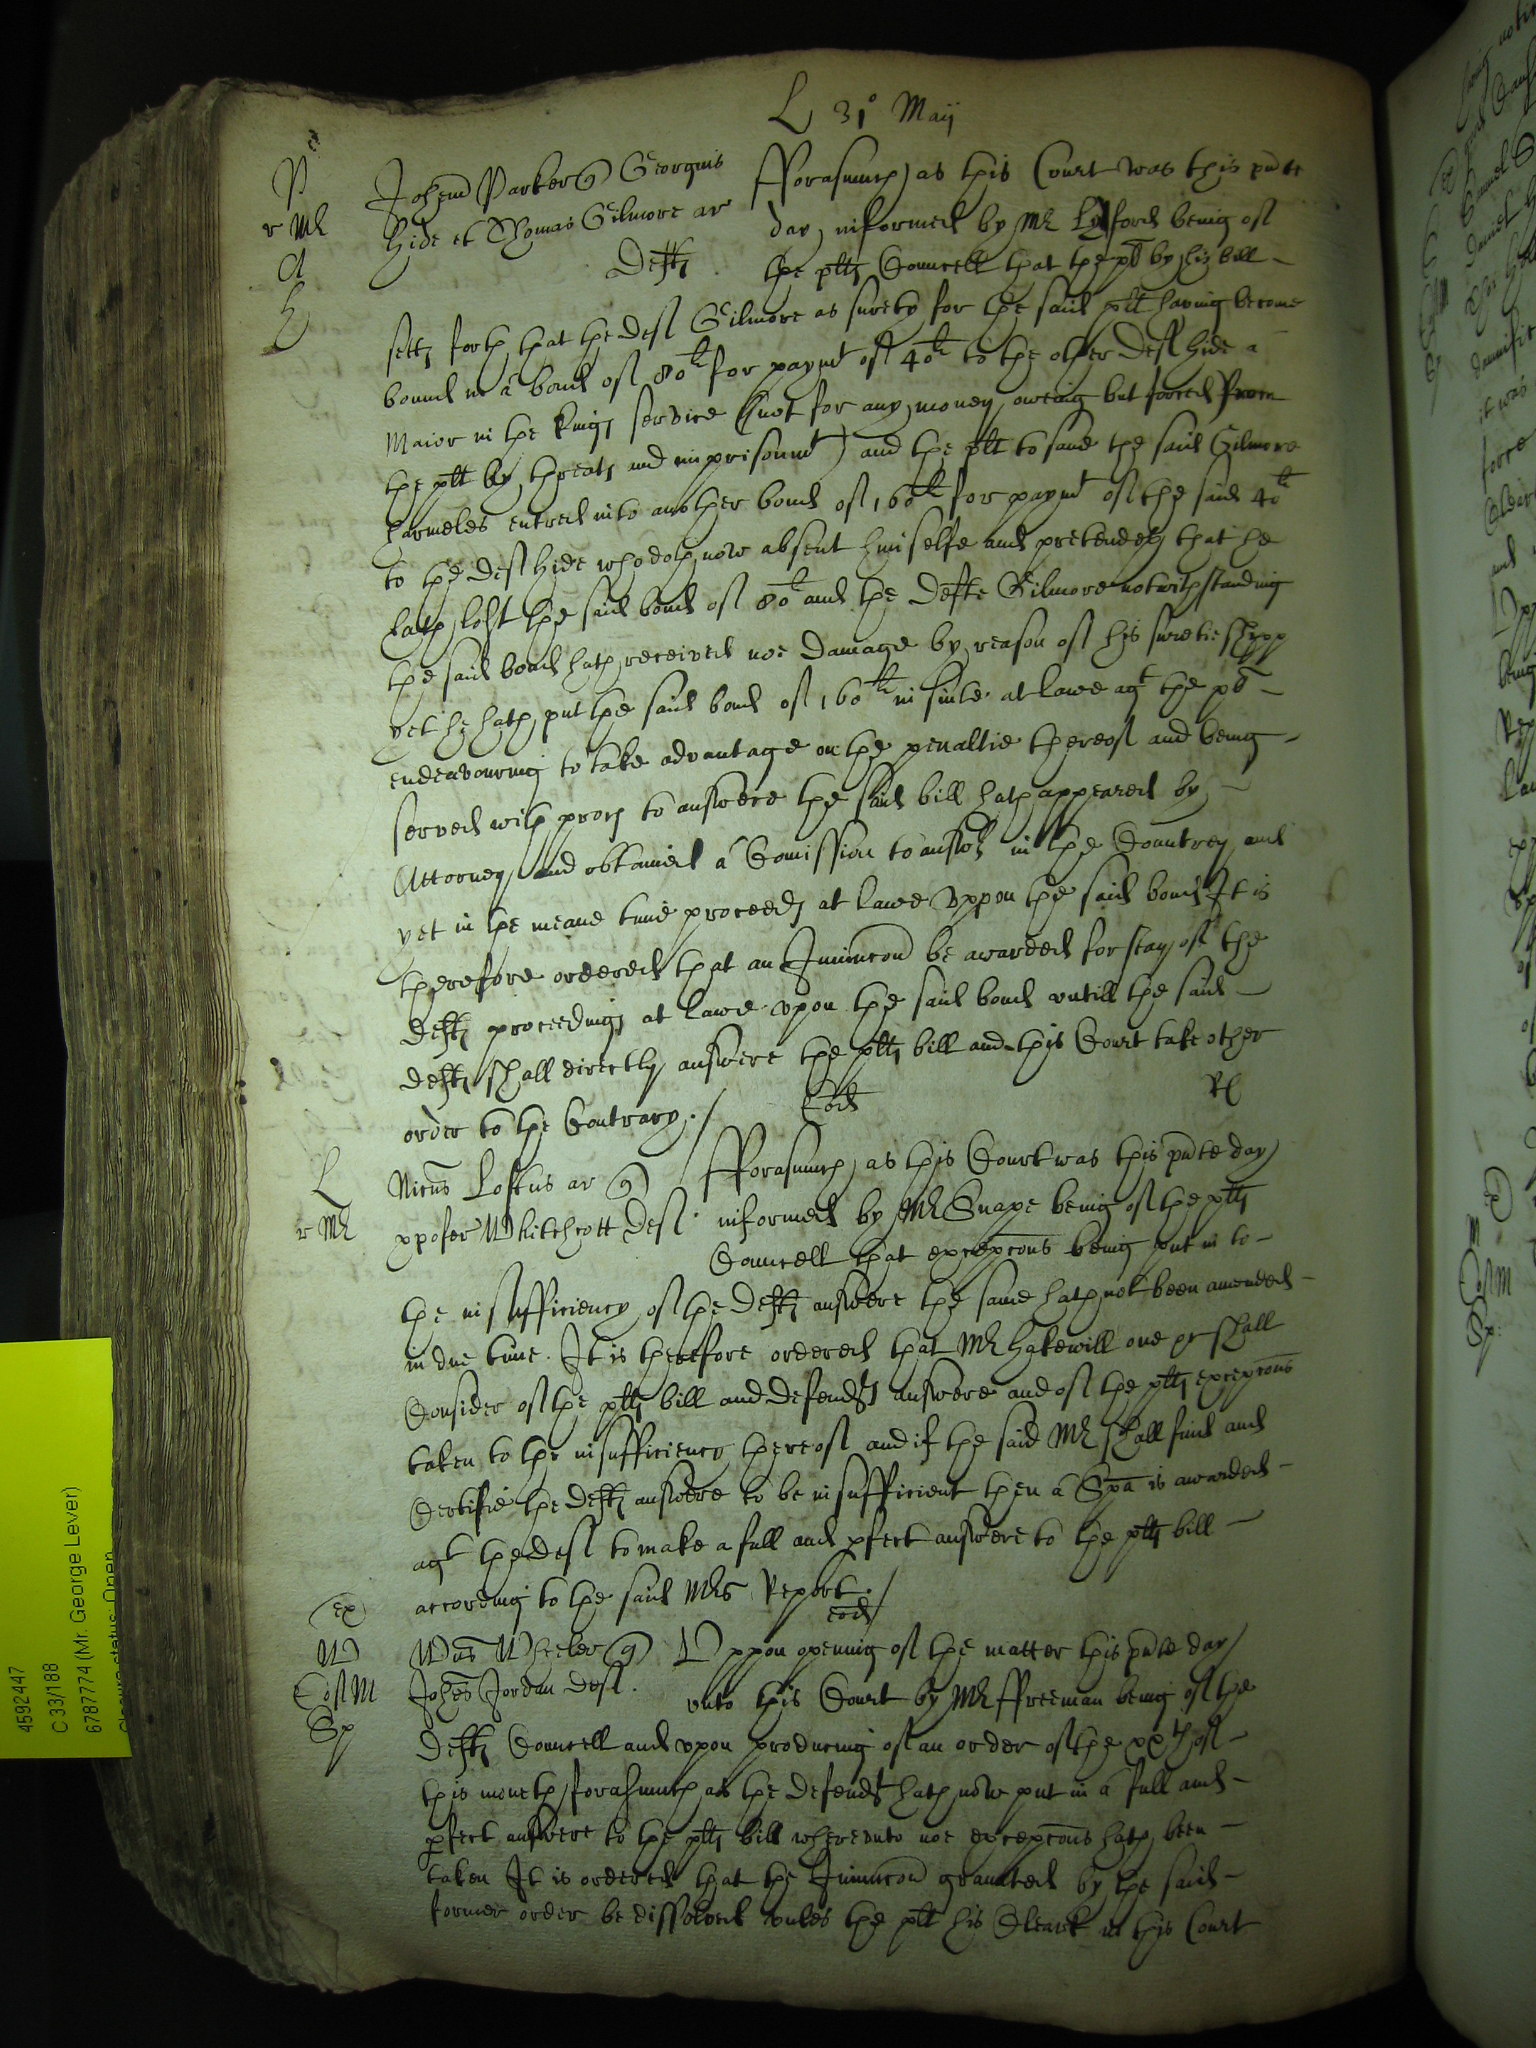 L 31° Maij
P
Johem Parker q Georgius
fforasmuch as this Court was this pnte
r Mr
Hide et Thomas Gilmore ar
day informed by Mr Lydford being of
Defts
the plts Councell that the plt by his bill
setts forth that the deft Gilmore as surety for the said plt having become
bound in a bond of 80li for paymt of 40li to the other deft Hide a
Maior in the kings service (not for any money oweing but forced from
the plt by threats and imprisonmt) and the plt to save the said Gilmore
harmeles entred into another bond of 160li for paymt of the said 40li
to the deft Hide who doth now absent himselfe and pretendeth that he
hath lost the said bond of 80li and the Defte Gilmore notwithstanding
the said bond hath received noe damage by reason of his suretieshipp
yet he hath put the said bond of 160li in suite at lawe agt the plt
endeavouring to take advantage on the penaltie thereof and being
served with proces to answere the said bill hath appeared by
Attorney and obtained a Comission to answr in the Countrey and
yet in the meane time proceeds at lawe uppon the said bond It is
therefore ordered that an Iniuncon be awarded for stay of the
defts proceedings at lawe upon the said bond untill the said
defts shall directly answere the plts bill and this Court take other
order to the Contrary./
eod
L
Nicus Loftus ar q
fforasmuch as this Court was this pnte day
r Mr
xpofer Whitchcott deft
informed by Mr Snape being of the plts
Councell that excepcons being put in to
the insufficiency of the defts answere the same hath not been amended
in due time. It is therefore ordered that Mr Hakewill one pr shall
Consider of the plts bill and defendts answere and of the plts excepcons
taken to the insufficiency thereof and if the said Mr shall find and
Certifie the defts answere to be insufficient then a Spa is awarded
agt the deft to make a full and pfect answere to the plts bill
according to the said Mrs Report./
eod
ex
W
Wus Wheeler q
Uppon opening of the matter this pnte day
Johes Jordan deft.
unto this Court by Mr ffreeman being of the
Sp
defts Councell and upon producing of an order of the xxth of
this moneth forasmuch as the defendt hath now put in a full and
pfect answere to the plts bill whereunto noe excepcons hath been
taken It is ordered that the Iniuncon graunted by the said
former order be dissolved unles the plt his Cleark in this Court
4592447
C 33/188
6787774 (Mr. George Lever)
Closure status: Open